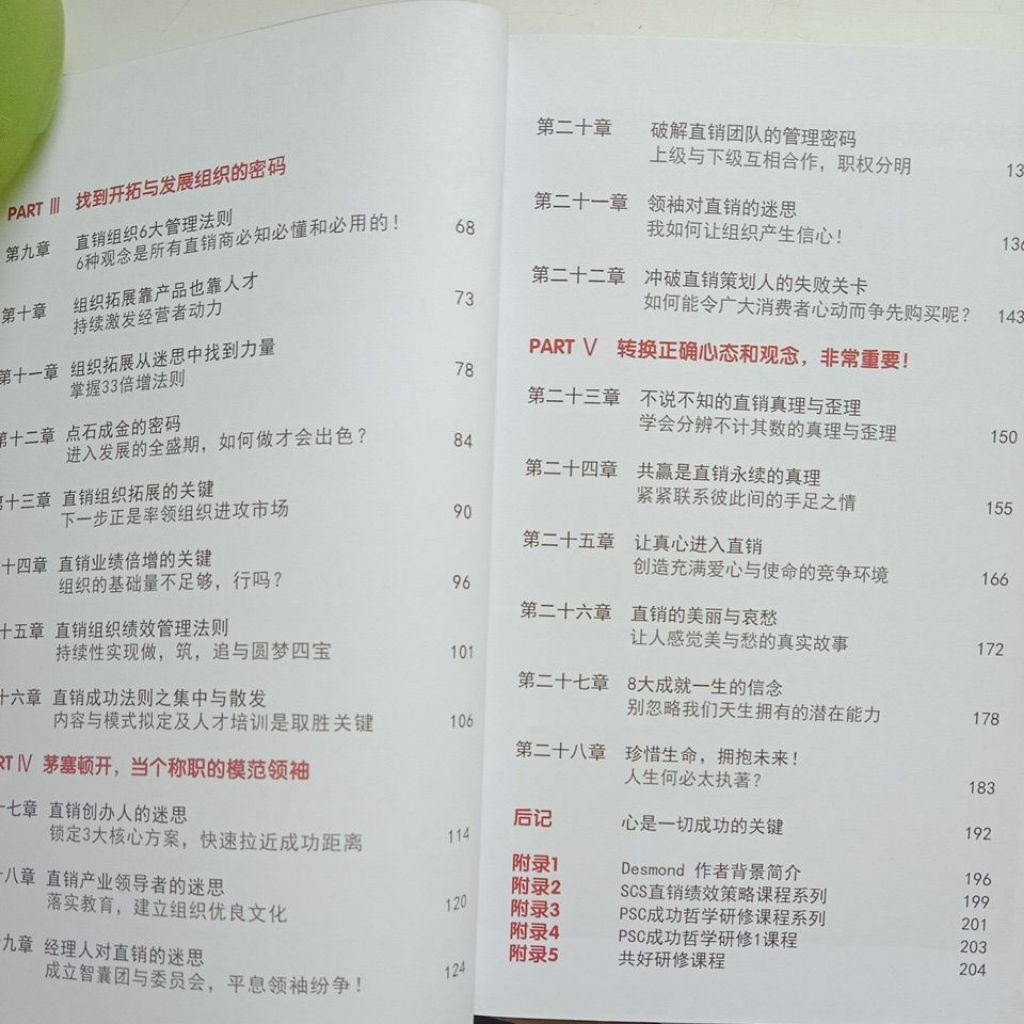 PART Ⅲ 找到开拓与发展组织的密码
第九章 直销组织6大管理法则
6种观念是所有直销商必知必懂和必用的！ 68
第十章 组织拓展靠产品也靠人才
持续激发经营者动力 73
第十一章 组织拓展从迷思中找到力量
掌握33倍增法则 78
第十二章 点石成金的密码
进入发展的全盛期，如何做才会出色？ 84
第十三章 直销组织拓展的关键
下一步正是率领组织进攻市场 90
十四章 直销业绩倍增的关键
组织的基础量不足够，行吗？ 96
十五章 直销组织绩效管理法则
持续性实现做，筑，追与圆梦四宝 101
十六章 直销成功法则之集中与散发
内容与模式拟定及人才培训是取胜关键 106
RT Ⅳ 茅塞顿开，当个称职的模范领袖
十七章 直销创办人的迷思
锁定3大核心方案，快速拉近成功距离 114
八章 直销产业领导者的迷思
落实教育，建立组织优良文化 120
九章 经理人对直销的迷思
成立智囊团与委员会，平息领袖纷争！ 124
第二十章 破解直销团队的管理密码
上级与下级互相合作，职权分明 13
第二十一章 领袖对直销的迷思
我如何让组织产生信心！ 136
第二十二章 冲破直销策划人的失败关卡
如何能令广大消费者心动而争先购买呢？ 143
PART Ⅴ 转换正确心态和观念，非常重要！
第二十三章 不说不知的直销真理与歪理
学会分辨不计其数的真理与歪理 150
第二十四章 共赢是直销永续的真理
紧紧联系彼此间的手足之情 155
第二十五章 让真心进入直销
创造充满爱心与使命的竞争环境 166
第二十六章 直销的美丽与哀愁
让人感觉美与愁的真实故事 172
第二十七章 8大成就一生的信念
别忽略我们天生拥有的潜在能力 178
第二十八章 珍惜生命，拥抱未来！
人生何必太执著？ 183
后记 心是一切成功的关键 192
附录1 Desmond 作者背景简介 196
附录2 SCS直销绩效策略课程系列 199
附录3 PSC成功哲学研修课程系列 201
附录4 PSC成功哲学研修1课程 203
附录5 共好研修课程 204